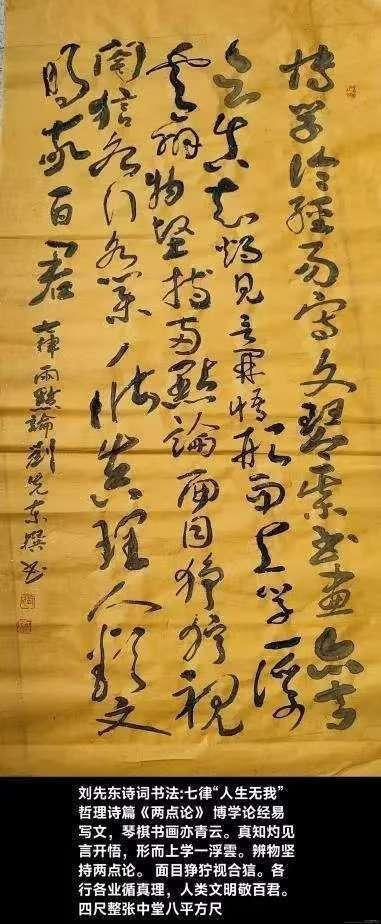 博学论经易写文琴棋书画亦青
云真知灼见言开悟形而上学一浮
云辨物坚持两點論面目狰狞视
各行各業循真理人类文
明敬百君
七律兩點論劉先东撰书
刘先东诗词书法:七律“人生无我”
哲理诗篇《两点论》 博学论经易
写文，琴棋书画亦青云。真知灼见
言开悟，形而上学一浮雲。辨物坚
持两点论。 面目狰狞视合狺。各
行各业循真理，人类文明敬百君。
四尺整张中堂八平方尺